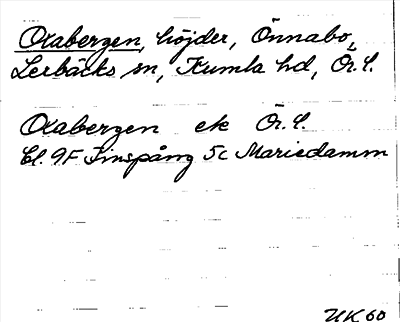 Oxabergen, höjder, Önnabo,
Lerbäcks sn, Kumla hd, Ör. l.
Oxabergen ek Ör. l.
bl. 9F Finspång 5c Mariedamm
UK 60